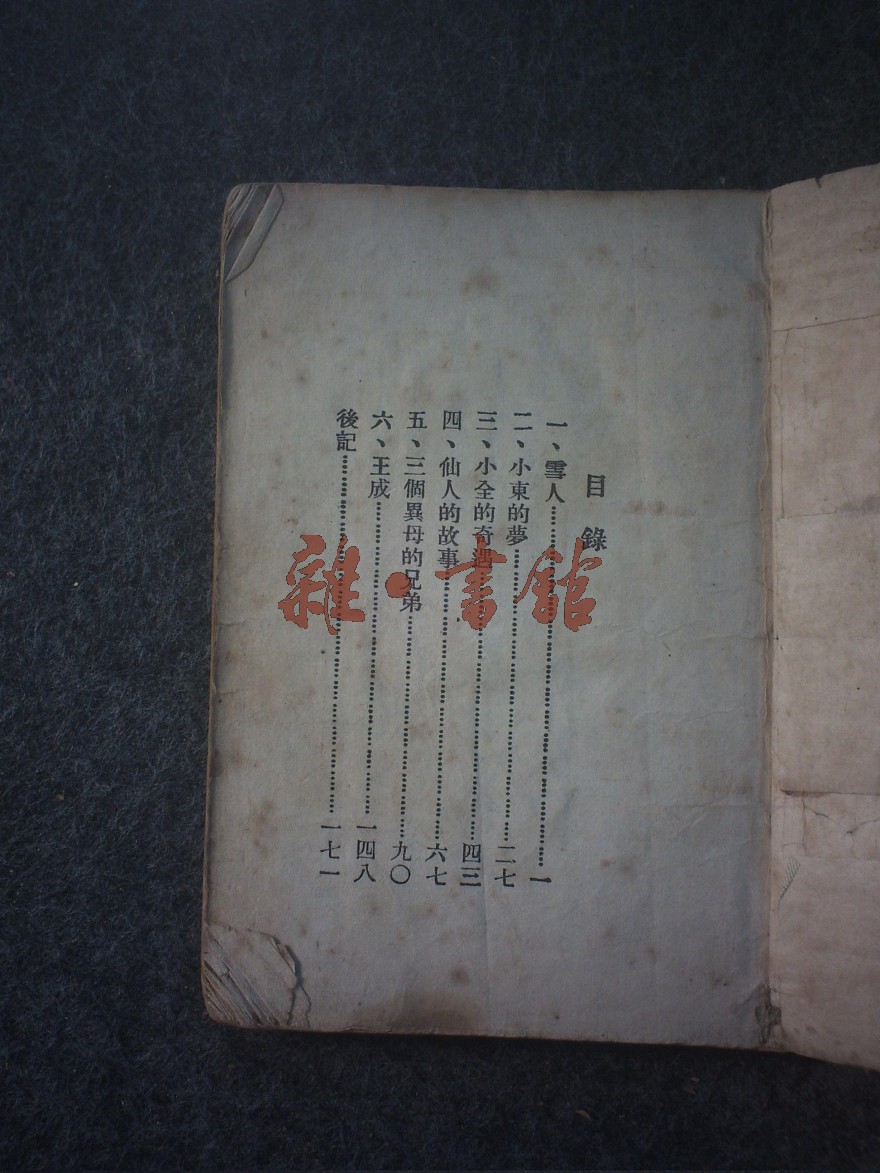 目錄
一、雪人……一
二、小東的夢……二七
三、小全的奇遇……四三
四、仙人的故事……六七
五、三個異母的兄弟……九〇
六、王成……一四八
後記……一七一
雜·書館